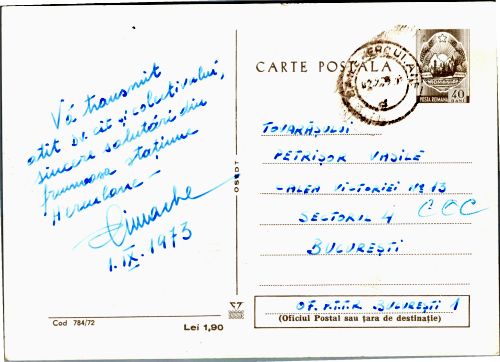 Vă transmit
atît dv. cît și colectivului,
sincere salutări din
frumoasa stațiune
Herculane –
Dimache
1.IX.1973
Cod 784/72
Lei 1,90
CARTE POSTALĂ
POSTA ROMANA
40
TOVARĂȘULUI
PETRIȘOR VASILE
CALEA VICTORIEI Nº 13
SECTORUL 4 CCC
BUCUREȘTI
OF. P.T.T.R. BUCUREȘTI 1
(Oficiul Postal sau țara de destinație)